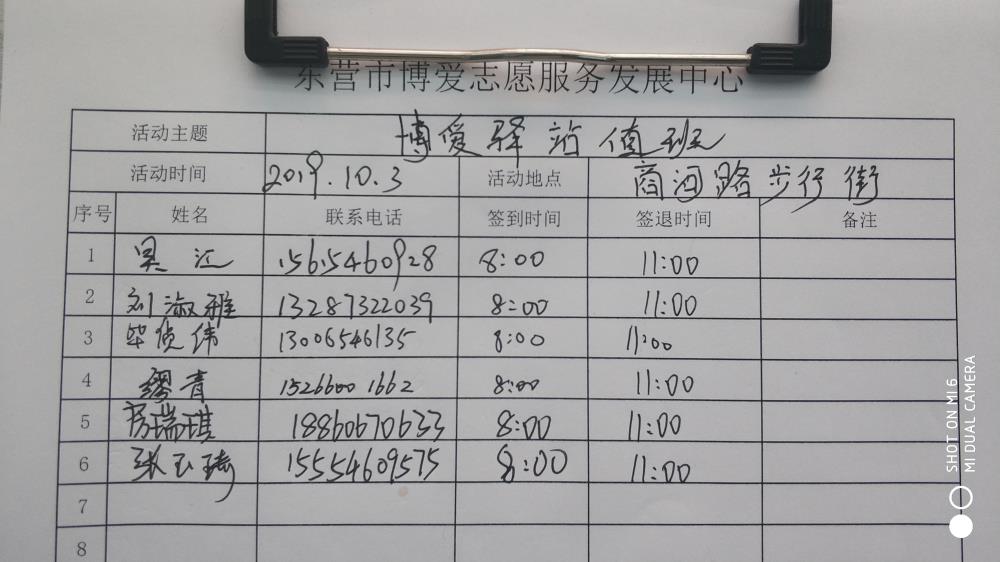 东营市博爱志愿服务发展中心
活动主题 博爱驿站值班
活动时间 2019.10.3 活动地点 商河路步行街
序号 姓名 联系电话 签到时间 签退时间 备注
1 吴江 15615460928 8:00 11:00
2 刘淑雅 13287322039 8:00 11:00
3 毕侦伟 13006546135 8:00 11:00
4 缪青 15266001662 8:00 11:00
5 瑞琪 18860670633 8:00 11:00
6 张玉琦 15554609575 8:00 11:00
7
8
SHOT ON MI 6
MI DUAL CAMERA